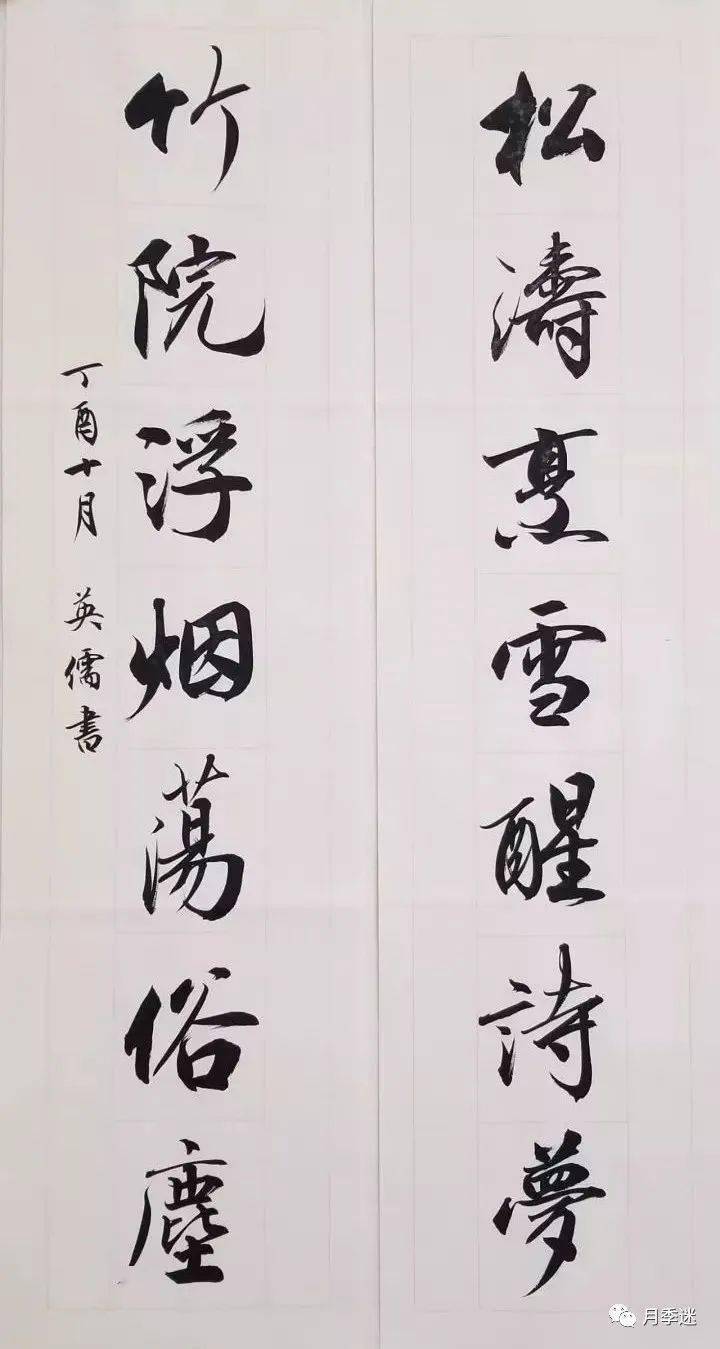 松濤烹雪醒詩夢
竹院浮烟蕩俗塵
丁酉十月 英儒書
月季迷